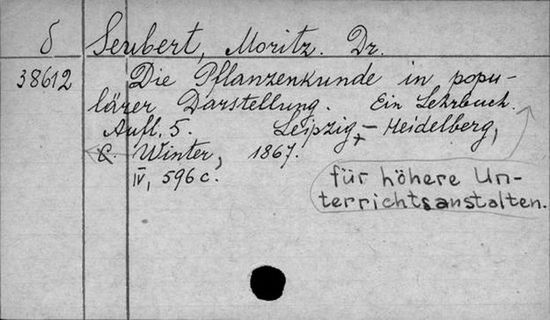 δ Seubert, Moritz. Dr.
38612 Die Pflanzenkunde in popu-
lärer Darstellung. Ein Lehrbuch.
Aufl. 5. Leipzig - Heidelberg,
C. Winter, 1867.
IV, 596 c.
für höhere Un-
terrichtsanstalten.